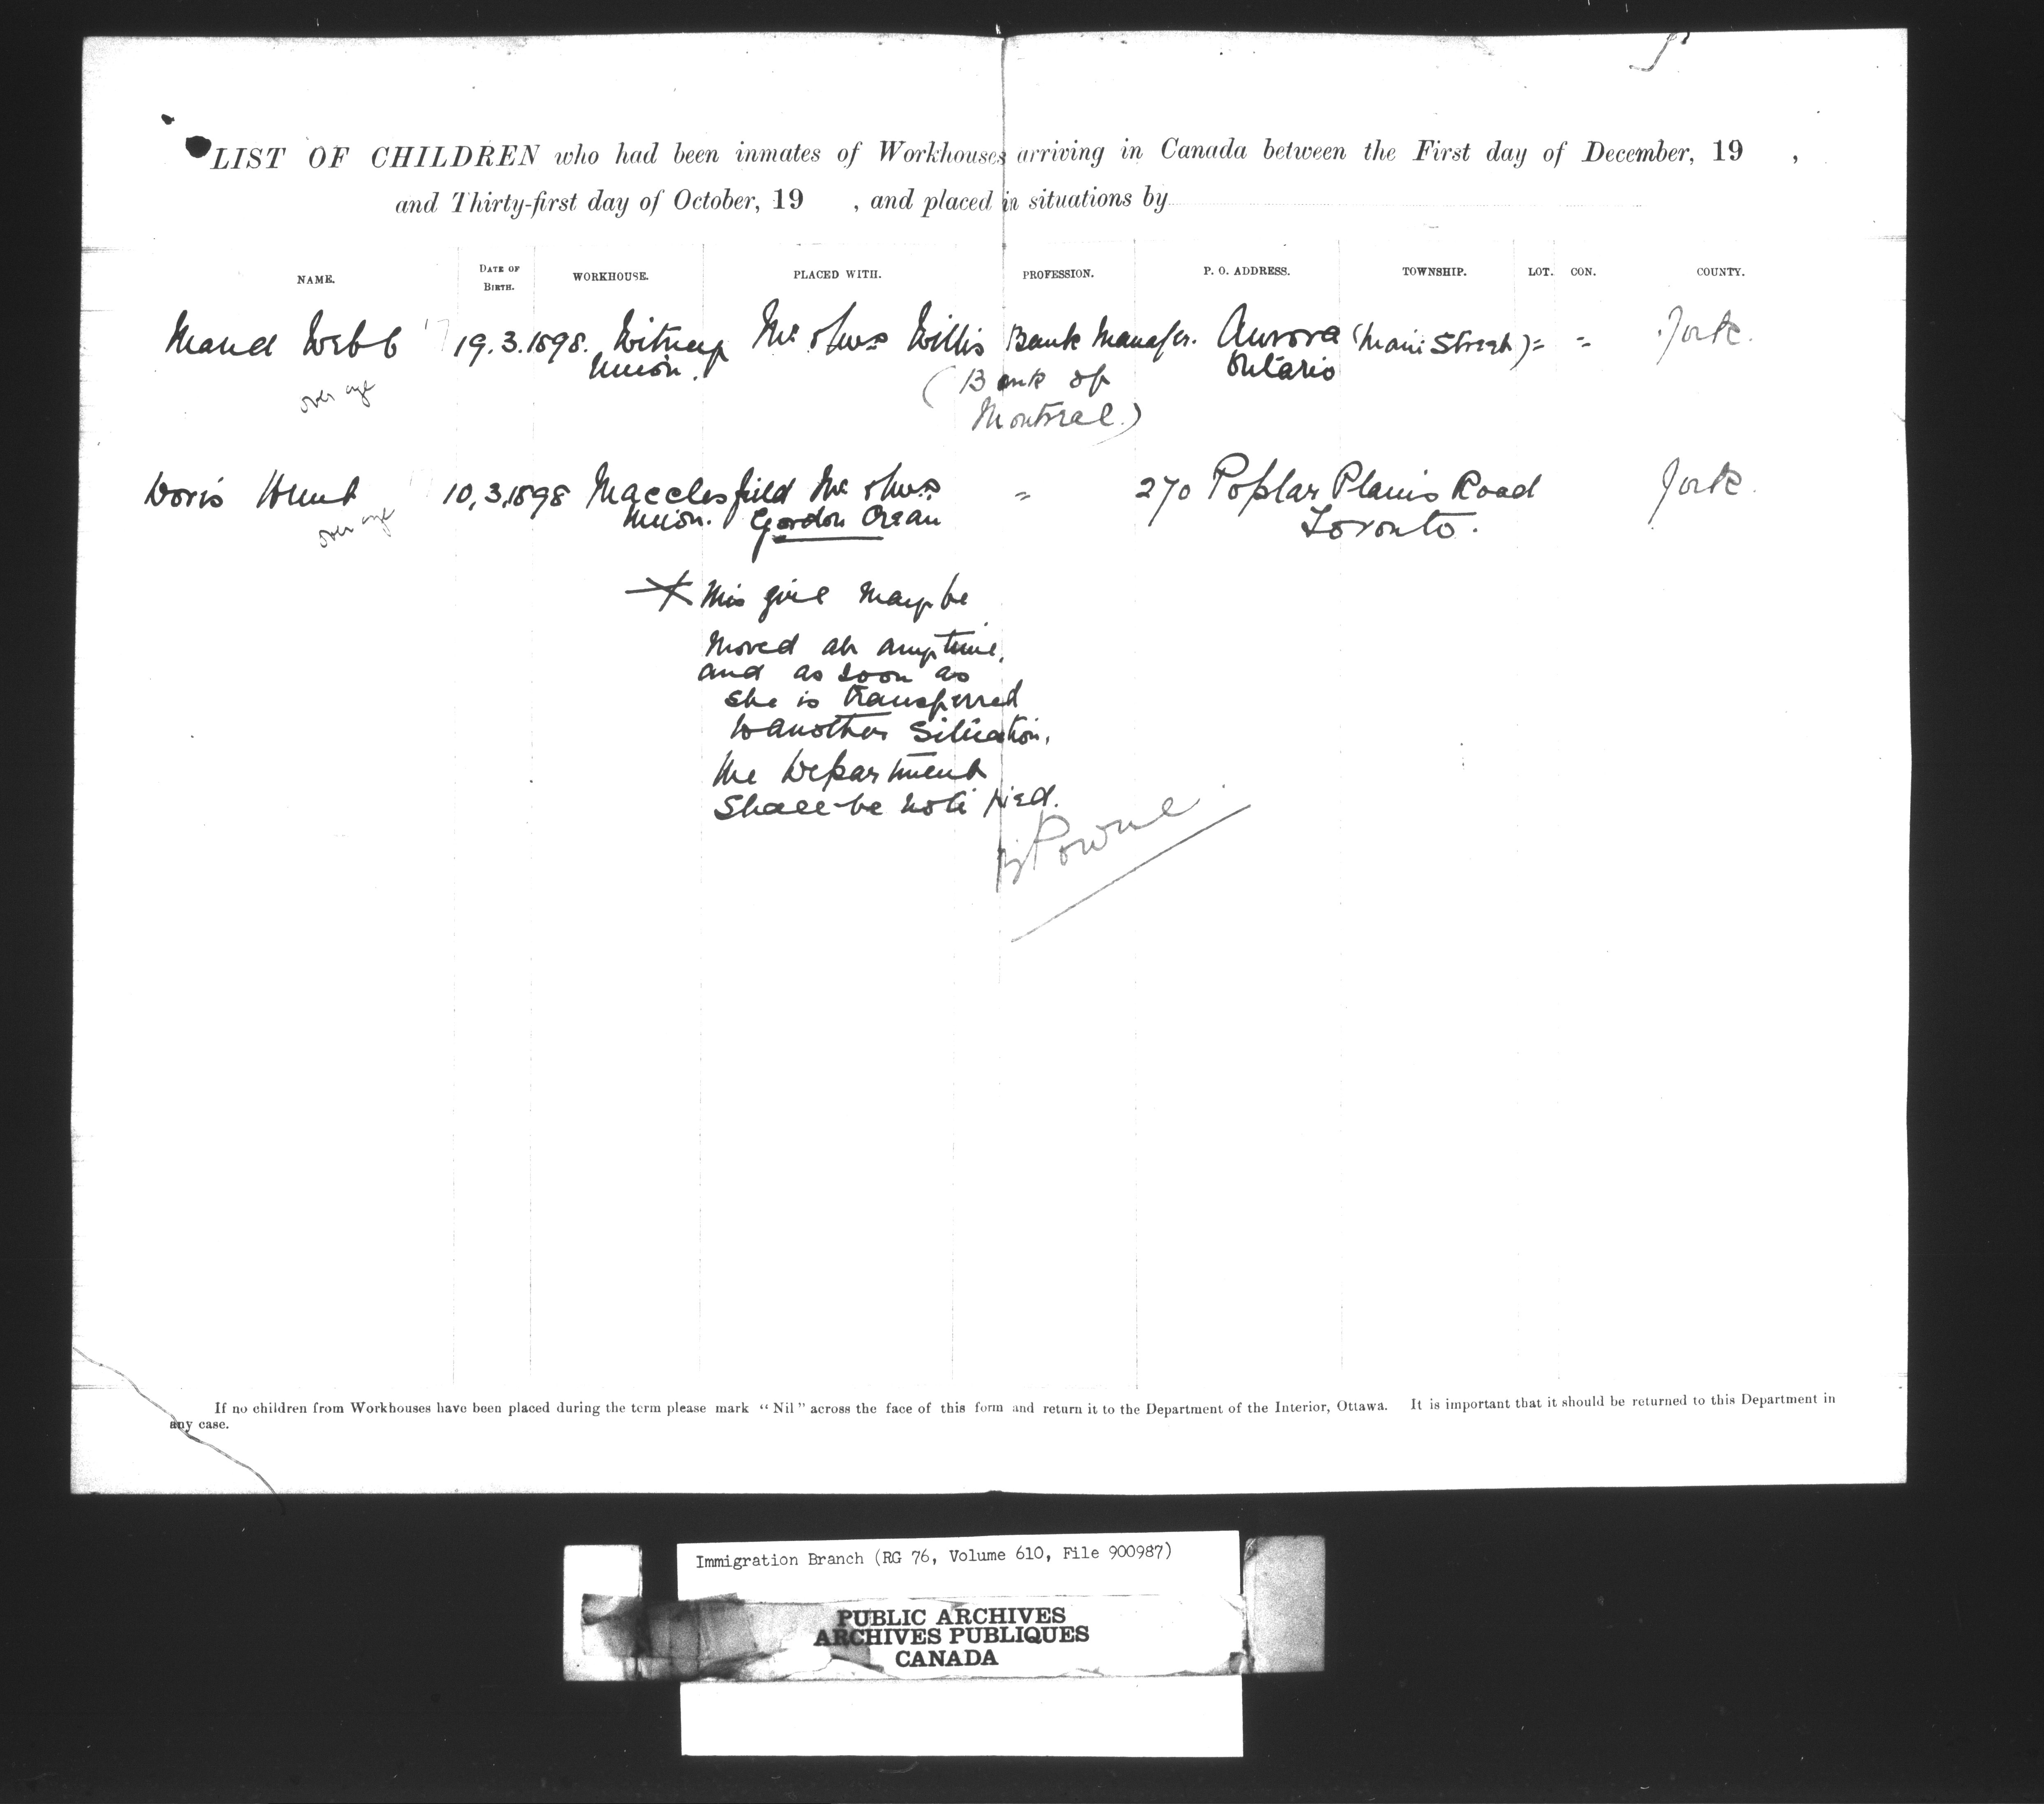 LIST OF CHILDREN who had been inmates of Workhouses arriving in Canada between the First day of December, 19 ,
and Thirty-first day of October, 19 , and placed in situations by
NAME. DATE OF BIRTH. WORKHOUSE. PLACED WITH. PROFESSION. P. O. ADDRESS. TOWNSHIP. LOT. CON. COUNTY.
Maud Webb 17 19.3.1898. Witney Mr & Mrs Willis Bank Manager. Aurora (Main Street) = = York.
over age Union. (Bank of Ontario
Montreal.)
Doris Hunt 10.3.1898 Macclesfield Mr & Mrs = 270 Poplar Plains Road York.
over age Union. Gordon Toronto.
This girl may be
moved at any time,
and as soon as
she is transferred
to another situation,
the Department
shall be notified.
If no children from Workhouses have been placed during the term please mark "Nil" across the face of this form and return it to the Department of the Interior, Ottawa. It is important that it should be returned to this Department in
any case.
Immigration Branch (RG 76, Volume 610, File 900987)
PUBLIC ARCHIVES
ARCHIVES PUBLIQUES
CANADA